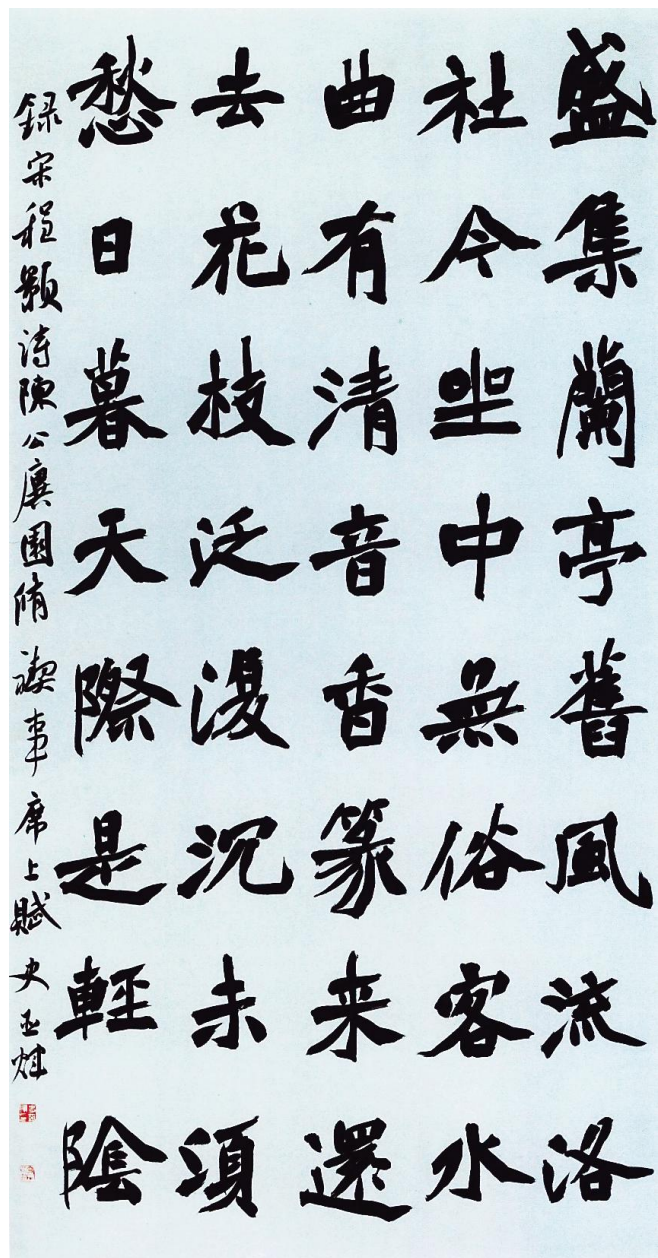 盛集蘭亭舊風流洛
社今坐中無俗客水
曲有清音香篆来還
去花枝泛復沉未須
愁日暮天際是輕陰
録宋程顥詩陳公廙園脩禊事席上賦 史玉